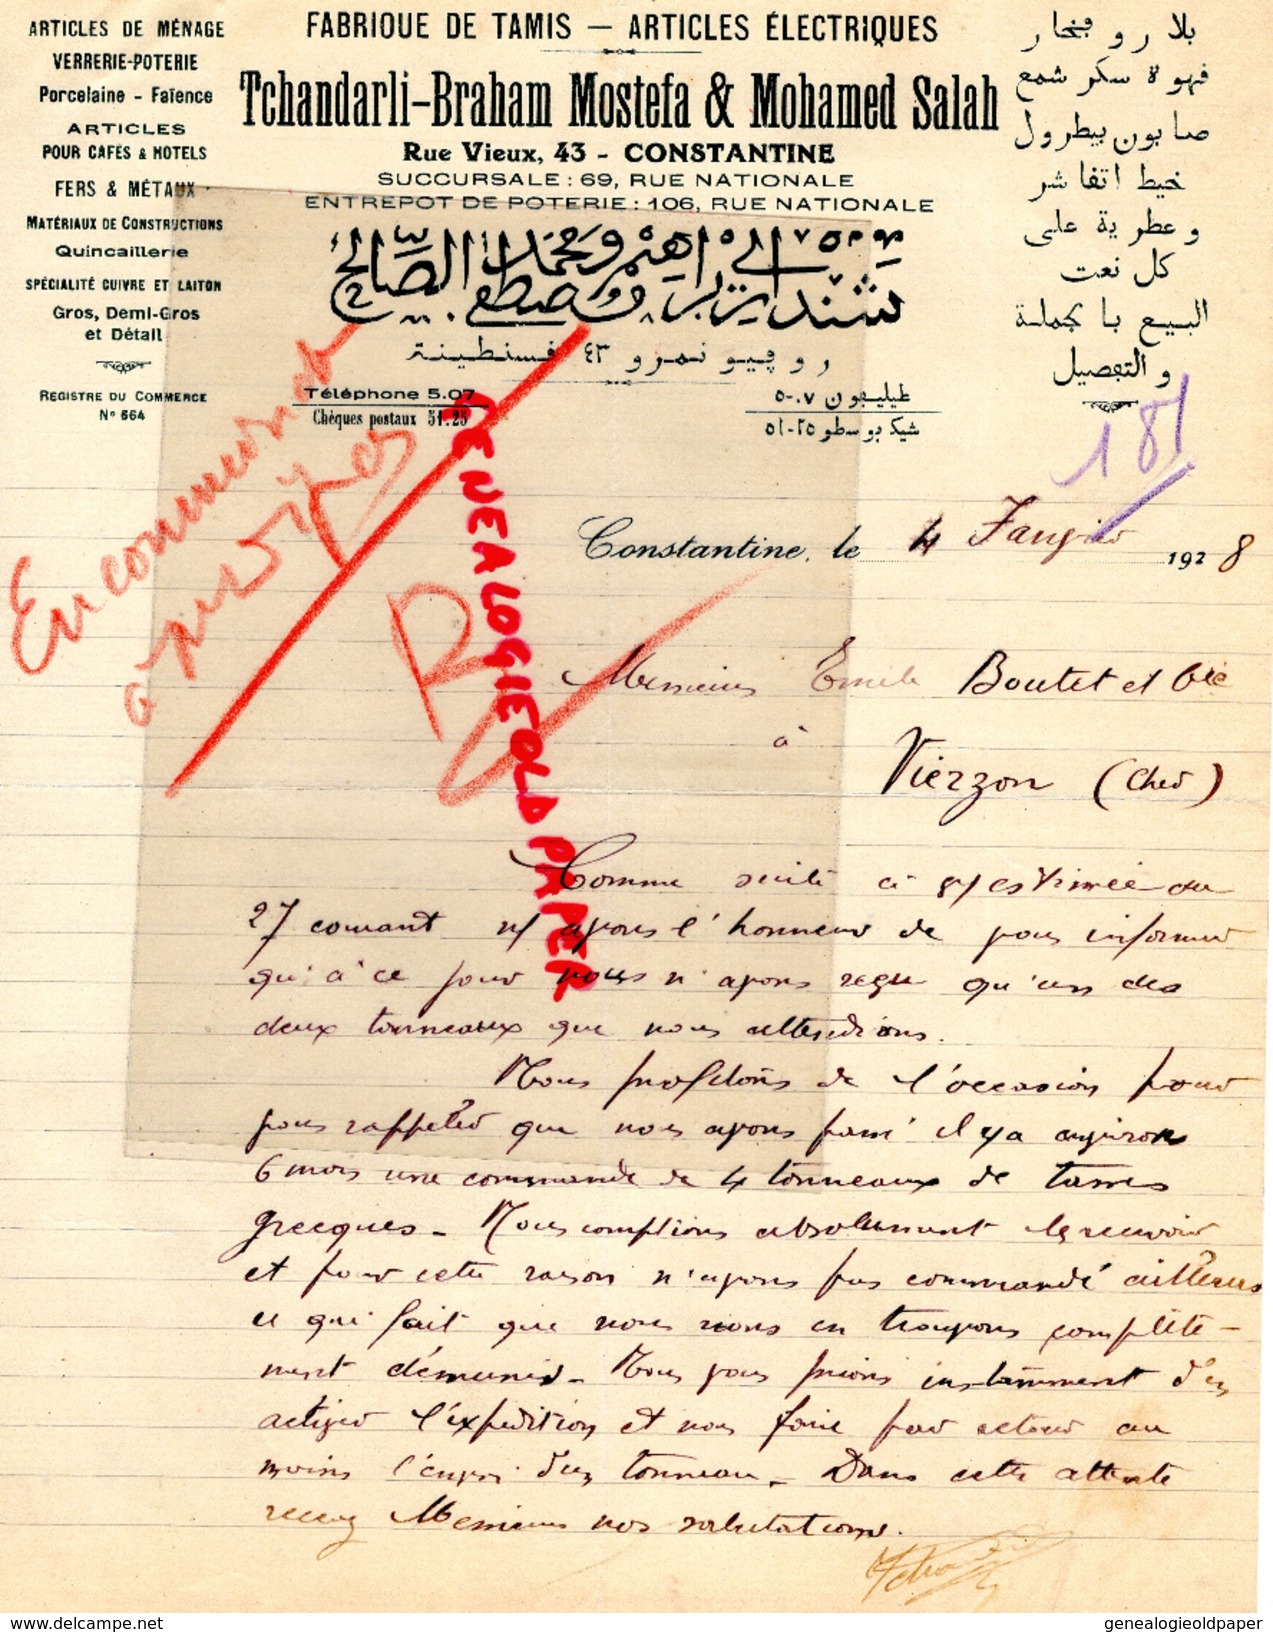 ARTICLES DE MÉNAGE
VERRERIE-POTERIE
Porcelaine - Faïence
ARTICLES
POUR CAFÉS & HOTELS
FERS & MÉTAUX
MATÉRIAUX DE CONSTRUCTIONS
Quincaillerie
SPÉCIALITÉ CUIVRE ET LAITON
Gros, Demi-Gros
et Détail
REGISTRE DU COMMERCE
N° 664
FABRIQUE DE TAMIS — ARTICLES ÉLECTRIQUES
Tchandarli-Braham Mostefa & Mohamed Salah
Rue Vieux, 43 - CONSTANTINE
SUCCURSALE : 69, RUE NATIONALE
ENTREPOT DE POTERIE : 106, RUE NATIONALE
روڢيو نمرو ٤٣ فسنطينة
Téléphone 5.07
Chèques postaux 51.25
طيليڢون ٠٧-٥
شيك بوسطو ٢٥-٥١
بلار وفخار
فهوة سكر شمع
صابون بيطرول
خيط اتفاشر
وعطرية على
كل نعت
البيع باجملة
والتفصيل
187
En commence
à
R
GENEALOGIEOLDPAPER
Constantine, le 4 Janvier 1928
Messieurs Emile Boutet et Cie
à
Vierzon (Cher)
Comme suite à v/ estimée du
27 courant n/ avons l'honneur de vous informer
qu'à ce jour nous n'avons reçu qu'un des
deux tonneaux que nous attendions.
Nous profitons de l'occasion pour
vous rappeler que nous avons passé il y a environ
6 mois une commande de 4 tonneaux de tasses
grecques - Nous comptions absolument les recevoir
et pour cette raison n'avons pas commandé ailleurs
ce qui fait que nous nous en trouvons complète-
ment démunis - Nous vous prions instamment d'en
activer l'expédition et nous faire par retour au
moins l'envoi d'un tonneau - Dans cette attente
recevez Messieurs nos salutations.
genealogieoldpaper
www.delcampe.net